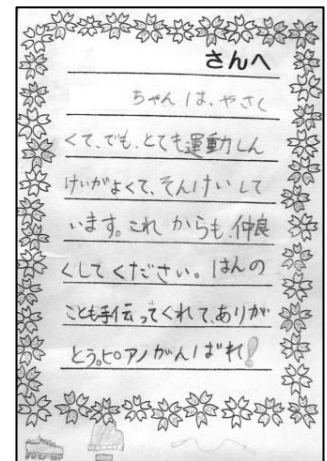 さんへ
ちゃんは、やさし
くて、でも、とても運動しん
けいがよくて、そんけいして
います。これからも、仲良
くしてください。はんの
ことも手伝ってくれて、ありが
とう。ピアノがんばれ！